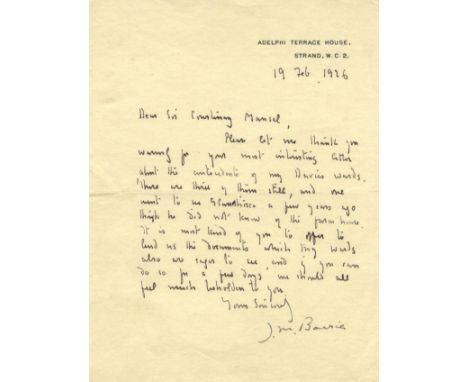 ADELPHI TERRACE HOUSE,
STRAND, W.C.2.
19 Feb 1926
Dear Sir Courtenay Mansel,
Please let me thank you
warmly for your most interesting letter
about the antecedents of my Davies wards.
There are three of them still, and one
went to see a few years ago
though he did not know of the farm house.
It is most kind of you to offer to
lend us the documents which my wards
also are eager to see, and if you can
do so for a few days we should all
feel much beholden to you
Yours Sincerely
J. M. Barrie